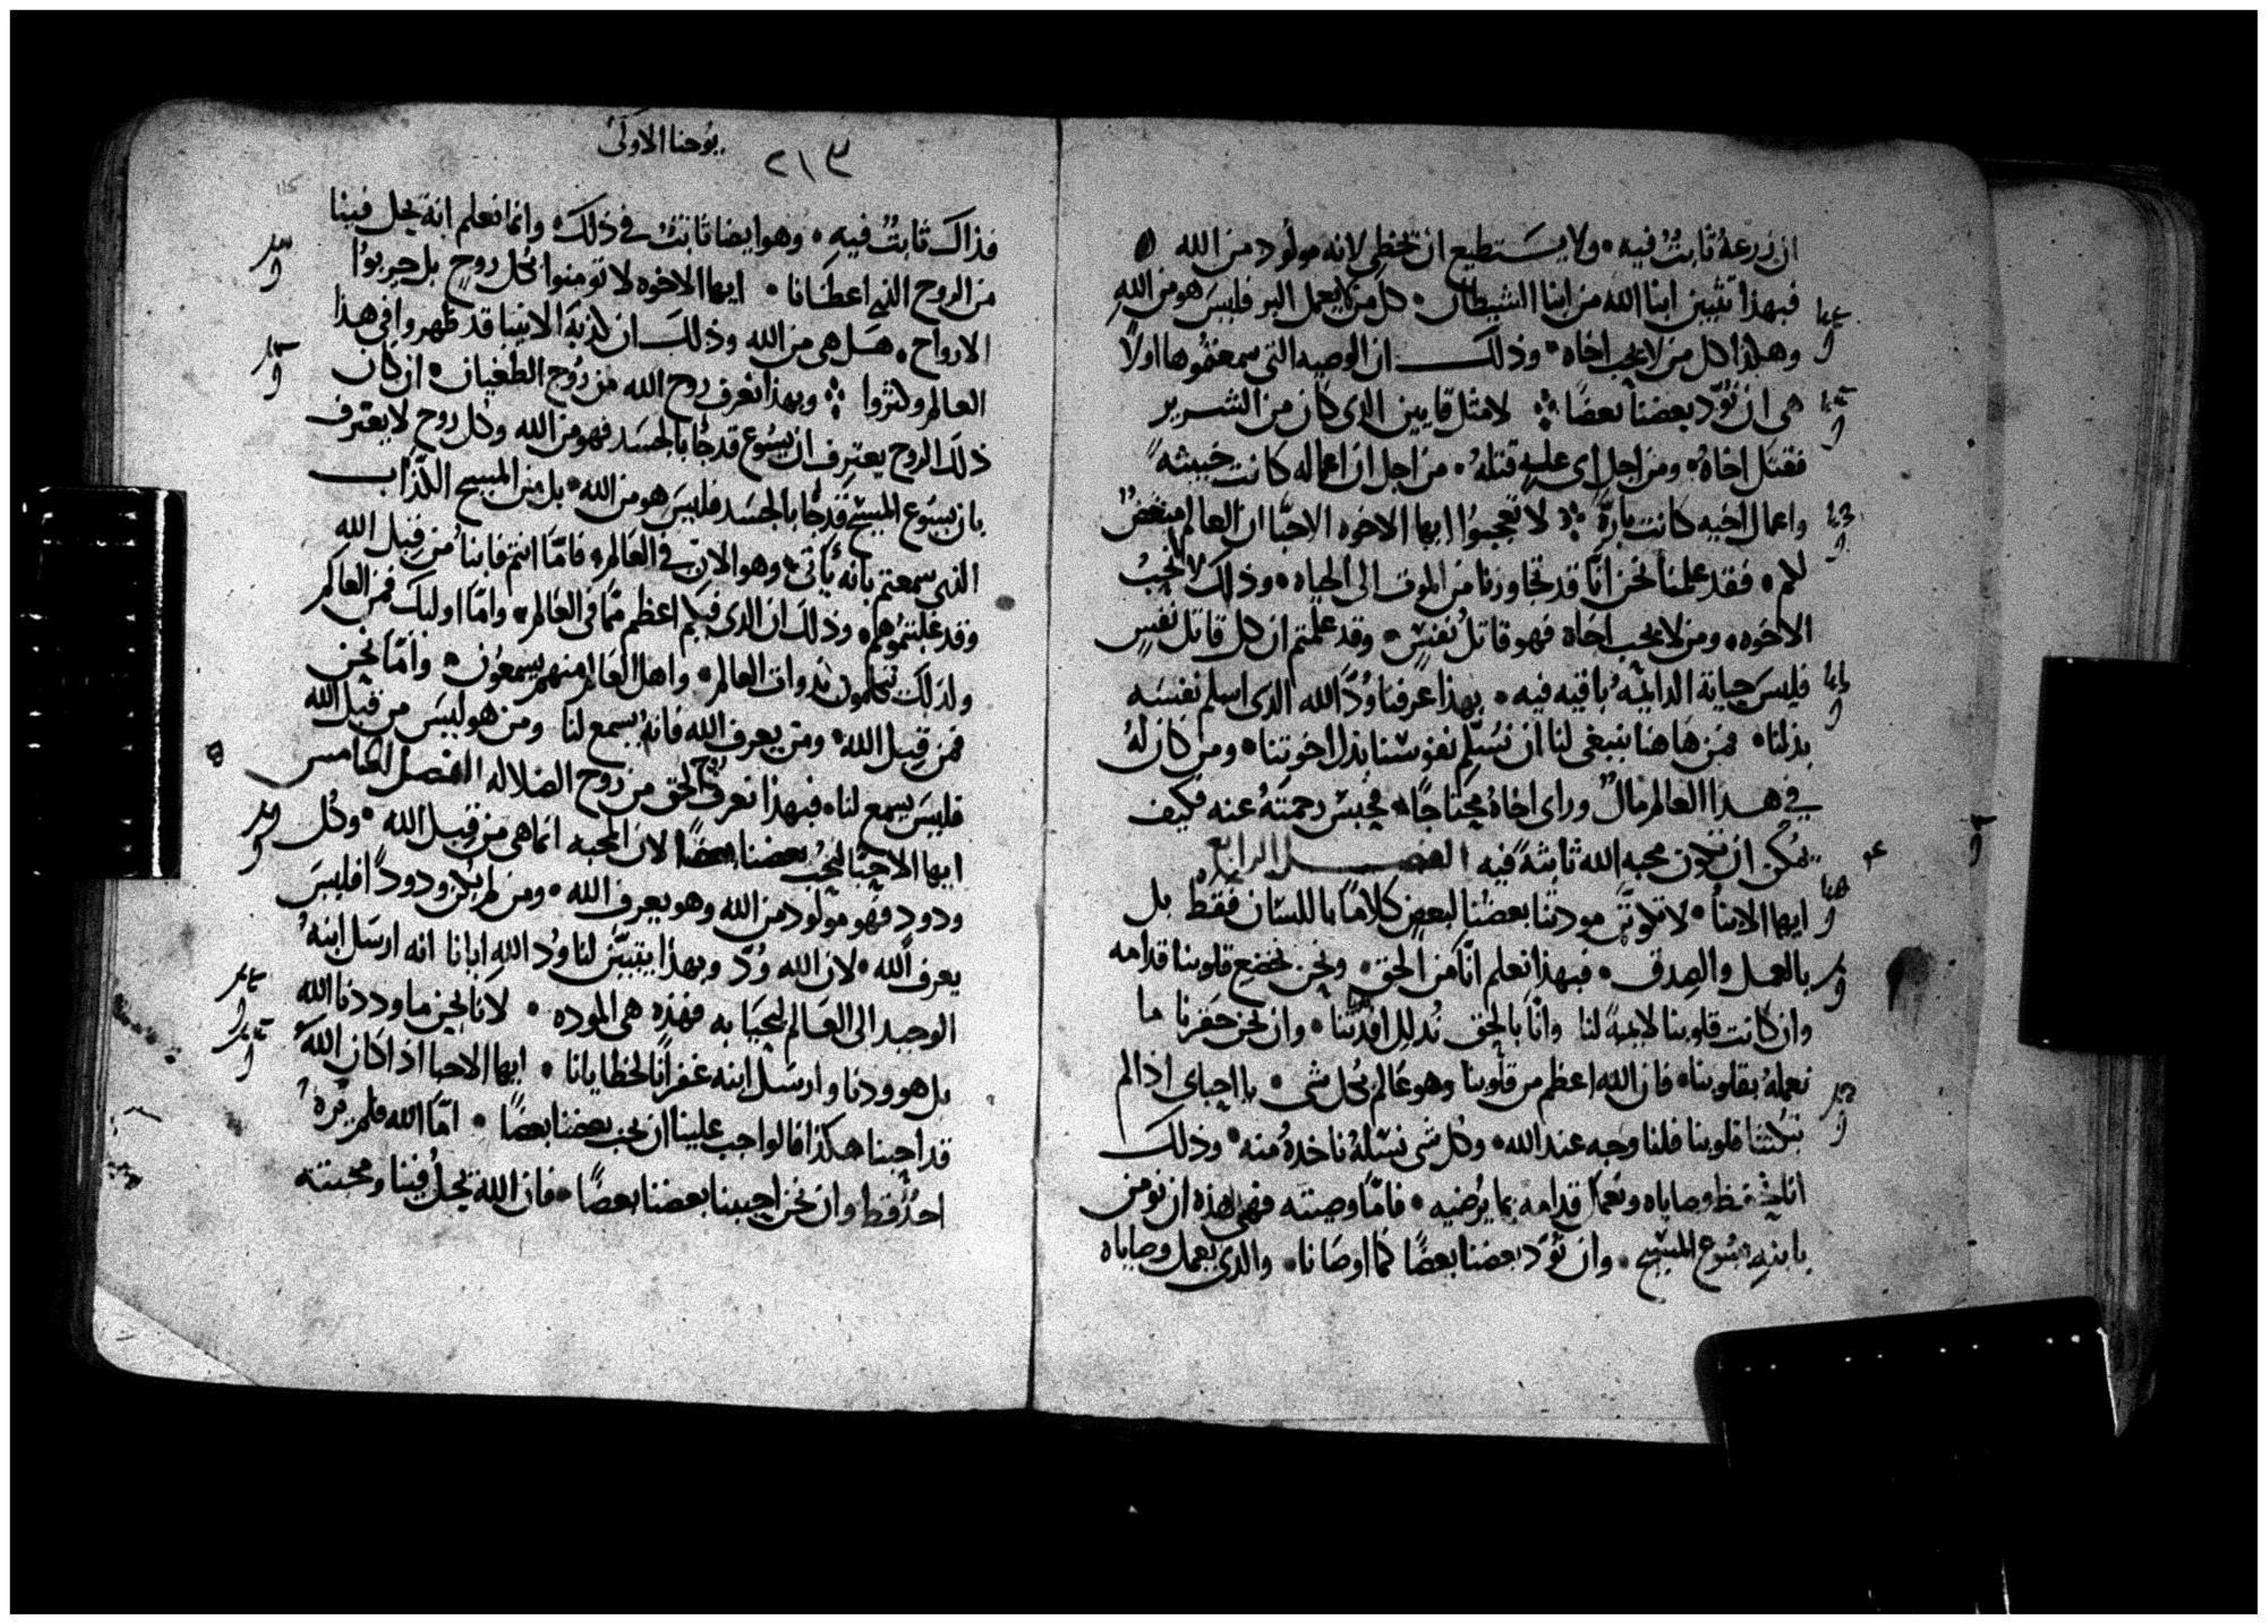 ان زرعهُ ثابتٌ فيه٠ ولا يستطيع ان تخطى لانه مولود من الله
فبهذا تتبين ابنا الله من ابنا الشيطان٠ كل من لا يعمل البر فليسَ هو من الله
وهكذا كل من لا يحب اخاه٠ وذلك ان الوصيه التى سمعتموها اولاً
هى ان نُوّد بعضنا بعضًا ؞ لا مثل قايين الدى كان من الشرير
فقتل اخاهُ٠ ومن اجل اى عليهِ قتلهُ٠ من اجل ان اعماله كانت خبيثه
واعمال اخيه كانت بارّهً ؞ لا تعجبوا ايها الاخوه الاحبّا ان العالم مبغضٌ
لكم٠ فقد علمنا نحن انّا قد تجاوزنا من الموت الى الحياه٠ وذلك لانا نحبُ
الاخوه٠ ومن لا يحب اخاه فهو قاتلُ نفسٍ٠ وقد علمتم ان كل قاتل نفسٍ
فليسَ حياية الدايمهُ باقيه فيه٠ بهذا عرفنا وُدَّ الله الدى اسلم نفسَه
بدلنا٠ فمن هاهنا ينبغى لنا ان نُسَلِّم نفوسَنا بدل اخوتنا٠ ومن كان لهُ
فى هذا العالم مالٌ وراى اخاهُ محتاجًا٠ فحبسَ رحمتهُ عنه فكيف
يُمكن ان تكون محبه الله ثابتهً فيه الفصل الرابع
ايها الابنا٠ لا تكوننَّ مودتنا بعضُنا لبعضٍ كلامًا باللسَان فقط بل
بالعمل والصدق٠ فبهذا نعلم انّا من الحق٠ ونحن نخضع قلوبنا قدامه
وان كانت قلوبنا لايمهً لنا وانّا بالحق نُدلل افئدتنا٠ وان نحن حقرنا ما
نعملهُ بقلوبنا٠ فان الله اعظم من قلوبنا وهو عالم بكل شى٠ يا احباى اذا لم
تبكتنا قلوبنا فلنا وجه عند الله٠ وكل شى نسَلهُ ناخدهُ منه٠ وذلك
انا نحفظ وصاياه ونعمل قدامه بما يرضيه٠ فامّا وصيته فهى هذه ان نومن
بابنهِ يسُوع المسيح٠ وان نُوَدّ بعضنا بعضًا كما اوصَانا٠ والدى يعمل وصاياه
٢١٣
يوحنا الاولىُ
فذاك ثابتٌ فيهِ٠ وهو ايضا ثابتٌ فى ذلك٠ وانما نعلم انه يحل فينا
من الروح الذى اعطانا٠ ايها الاخوه لا تومنوا بكل روحٍ بل جربوُا
الارواح٠ هَل هى من الله وذلكَ ان كذبهَ الانبيا قد ظهروا فى هذا
العالم وكثروا ؞ وبهذا نعرف روح الله من رُوح الطغيان٠ ان كان
ذلكَ الروح يعترف ان يسُوع قد جا بالجسَد فهو من الله وكل روح لا يعترف
بان يسُوع المسيح قد جا بالجسَد فليسَ هو من الله٠ بل من المسيح الكذاب
الذى سمعتم بانه يأتى٠ وهو الان فى العالم٠ فامّا انتم فابنا من قِبل الله
وقد غلبتموُهم٠ وذلكَ ان الدى فيكم اعظم ممّا فى العَالم٠ وامّا اوليك فمن العالم
ولدلك تيكلمون بدوات العالم٠ واهل العَالم منهم يسمعوُن٠ وأمّا نحن
فمن قِبل الله٠ ومن يعرف الله فانهُ يسمع لنا ومن هو ليسَ من قبل الله
فليسَ يسمع لنا٠ فبهذا نعرف روح الحق من رُوح الضلاله الفصل الخامس
ايها الاحبّا ليحب بعضنا بعضًا لان المحبه انما هى من قِبل الله٠ وكُل
ودودٍ فهو مولود من الله وهو يعرف الله٠ ومن لم يكن ودودًا فليسَ
يعرف الله٠ لان الله وُدّ وبهذا يتبيّن لنا وُد اللهِ ايانا انه ارسَل ابنهُ
الوحيد الى العَالم لنحيا به فهذه هى الموده٠ لانا نحن ما وددنا الله
بل هو ودنا وارسَل ابنه غفرانًا لخطايانا٠ ايها الاحبا اذا كان اللهُ
قد احبنا هكذا فالواجب علينا ان نحب بعضنا بعضًا٠ امّا الله فلم يرهُ
احدٌ قط وان نحن احببنا بعضنا بعضًا٠ فان الله يحلُ فينا ومحبته